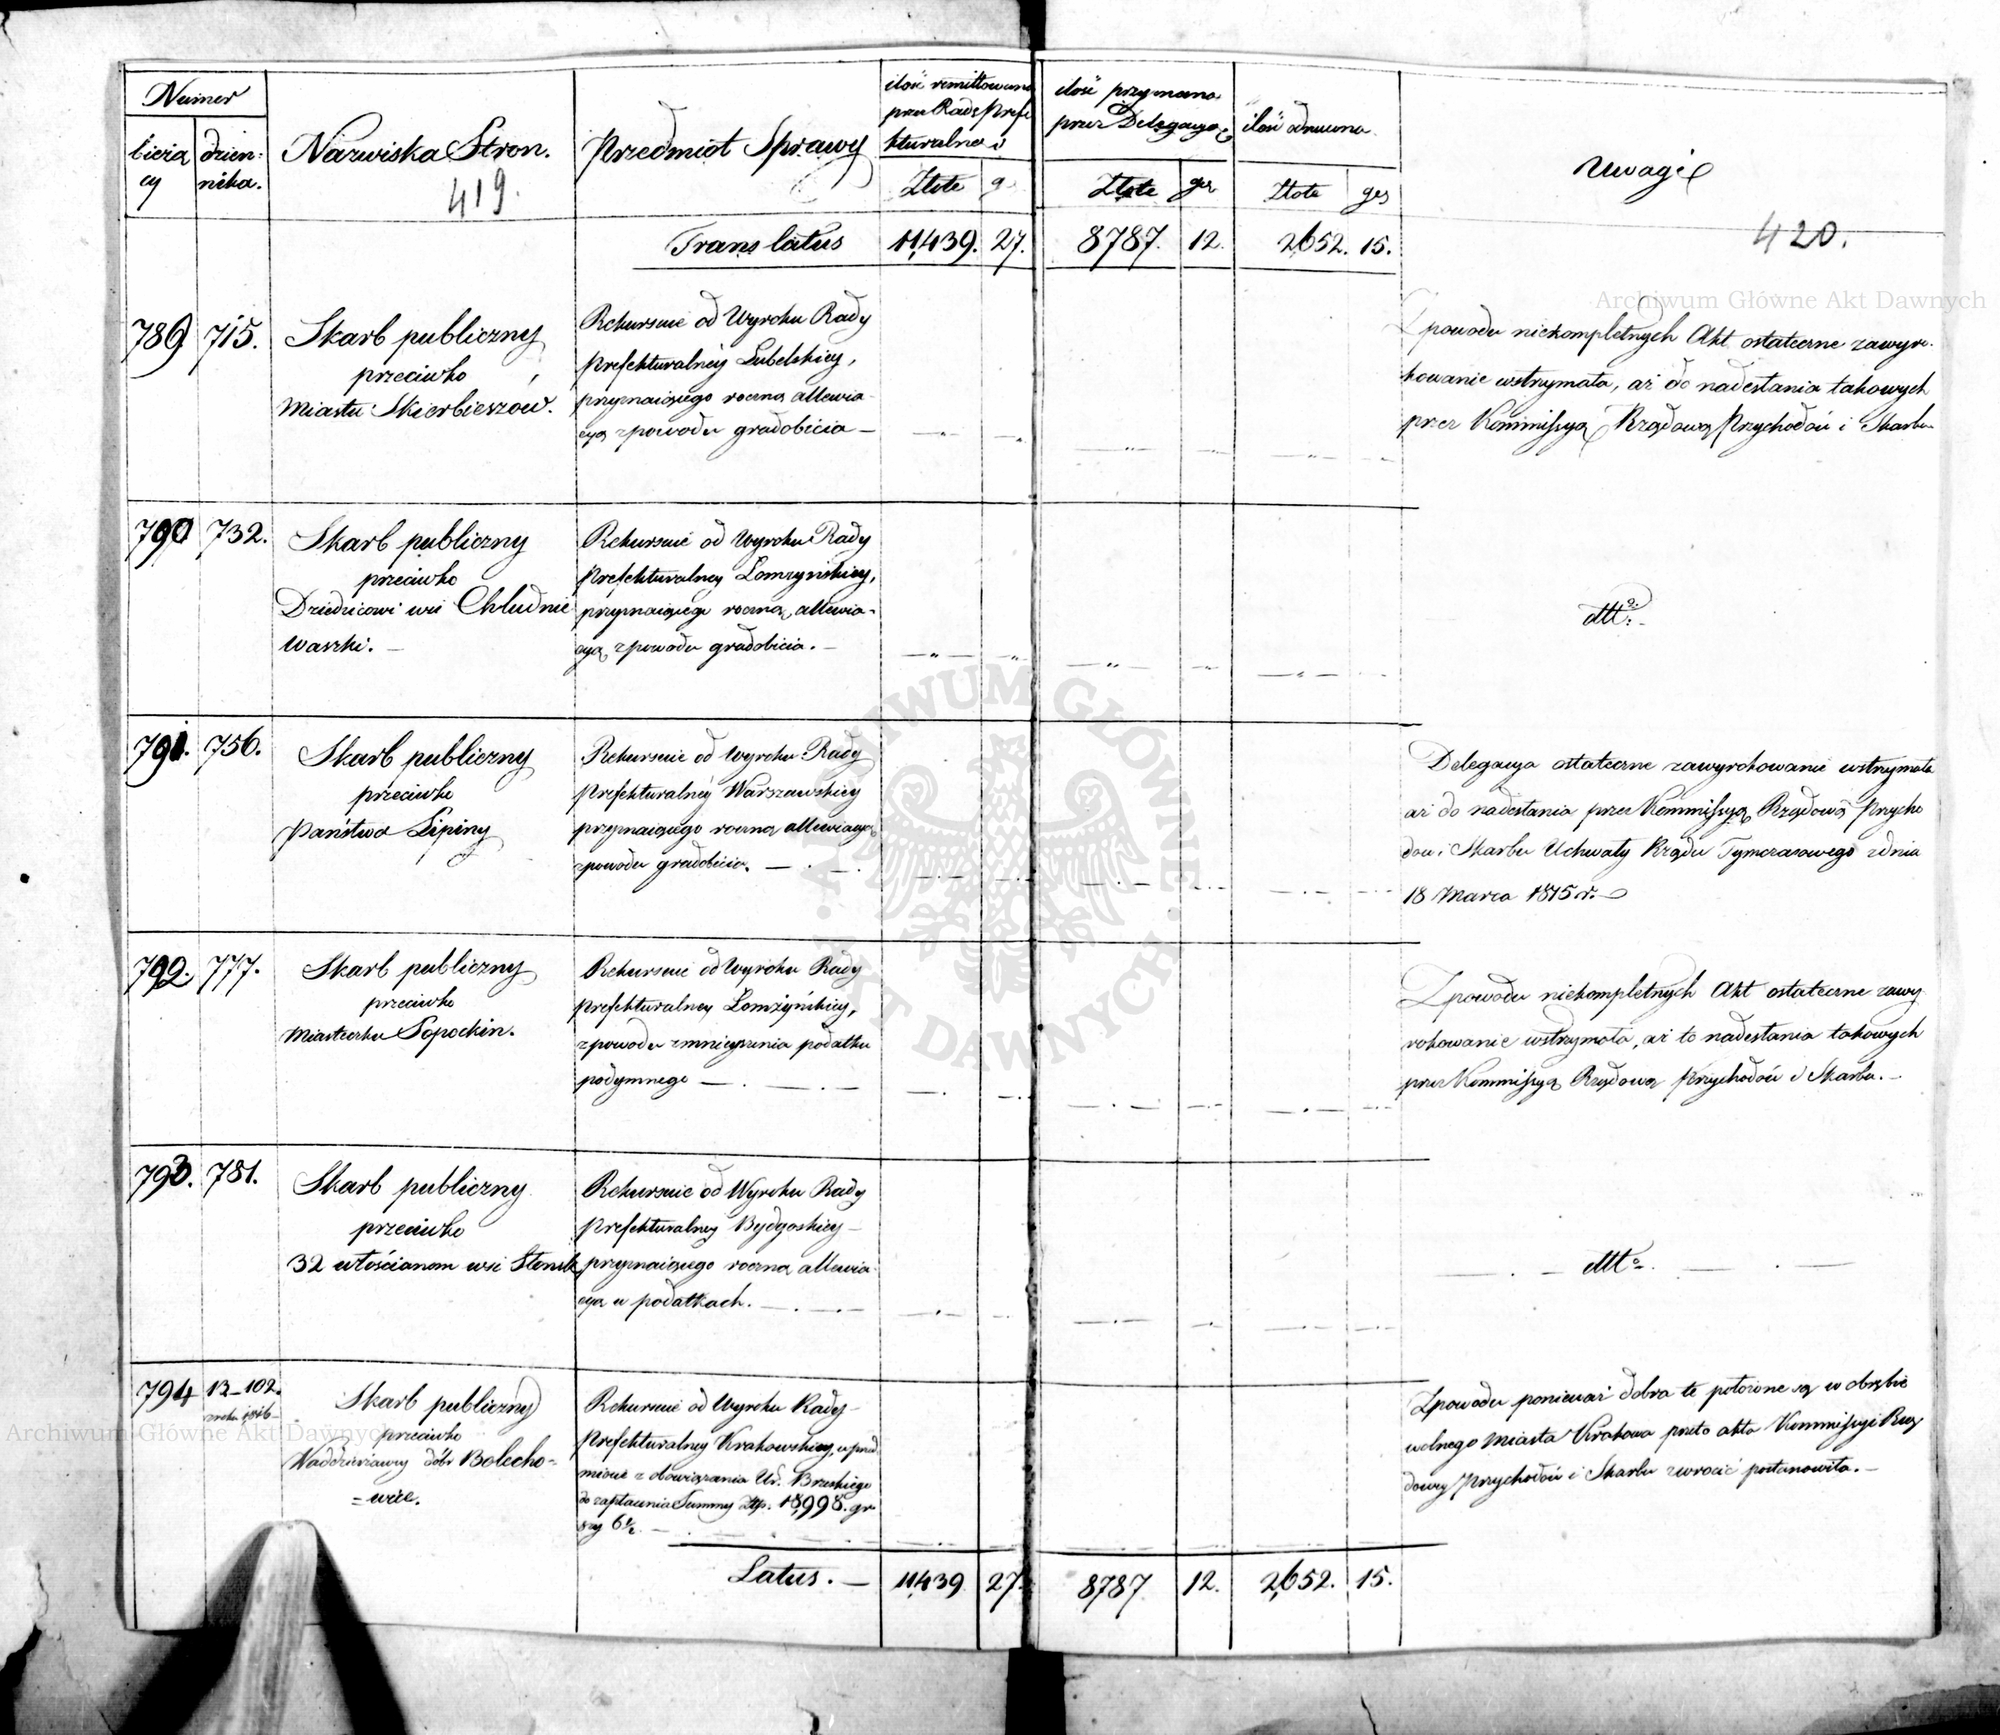 Numer
bieżą
cy
dzien:
nika.
Nazwiska Stron.
419.
Przedmiot Sprawy
ilość remittowana
przez Radę Prefe
kturalną
Złote g
ilość przyznana
przez Delegacyą
Złote gr
ilość odmowna
Złote gr
Uwagi
420.
Translatus 11,439. 27. 8787. 12. 2,652. 15.
Archiwum Główne Akt Dawnych
789 715.
Skarb publiczny
przeciwko
Miastu Skierbieszów.
Rekursuie od Wyroku Rady
Prefekturalnéy Lubelskiey,
przyznaiącego roczną allewia-
cyą z powodu gradobicia —
Z powodu niekompletnych Akt ostateczne zawyro-
kowanie wstrzymała, aż do nadesłania takowych
przez Kommissyą Rządową Przychodów i Skarbu
790 732.
Skarb publiczny
przeciwko
Dziedzicowi wsi Chludnie
waszki. —
Rekursuie od Wyroku Rady
Prefekturalney Łomżyńskiey,
przyznaiącego roczną allewia-
cyą z powodu gradobicia. —
dtto.
791. 756.
Skarb publiczny
przeciwko
Państwa Lipiny
Rekursuie od Wyroku Rady
Prefekturalnéy Warszawskiey
przyznaiącego roczną allewiacyą
z powodu gradobicia. —
Delegacya ostateczne zawyrokowanie wstrzymała
aż do nadesłania przez Kommissyą Rządową Przycho
dow i Skarbu Uchwały Rządu Tymczasowego z dnia
18 Marca 1815 r. —
792. 777.
Skarb publiczny
przeciwko
Miasteczku Sopockin.
Rekursuie od Wyroku Rady
Prefekturalney Łomżyńskiey,
z powodu zmnieyszenia podatku
podymnego —
Z powodu niekompletnych Akt ostateczne zawy
rokowanie wstrzymała, aż to nadesłania takowych
przez Kommissyą Rządową Przychodów i Skarbu. —
793. 781.
Skarb publiczny
przeciwko
32 włościanom wsi Słonsk
Rekursuie od Wyroku Rady
Prefekturalney Bydgoskiey —
przyznaiącego roczną allewia-
cyą w podatkach. —
dtto.
794 12–102.
z roku 1816
Skarb publiczny
przeciwko
Naddzierżawcy dóbr Bolecho=
=wice.
Rekursuie od Wyroku Rady
Prefekturalney Krakowskiey, w przed
miocie z obowiązania Ur. Brzeskiego
do zapłacenia Summy złp. 18,998. gr
szy 6½. —
Z powodu ponieważ dobra te położone są w obrębie
wolnego Miasta Krakowa przeto akta Kommissyi Rzą
dowey Przychodów i Skarbu zwrócić postanowiła. —
Archiwum Główne Akt Dawnych
Latus. — 11,439 27. 8787 12. 2,652. 15.
ARCHIWUM GŁÓWNE AKT DAWNYCH